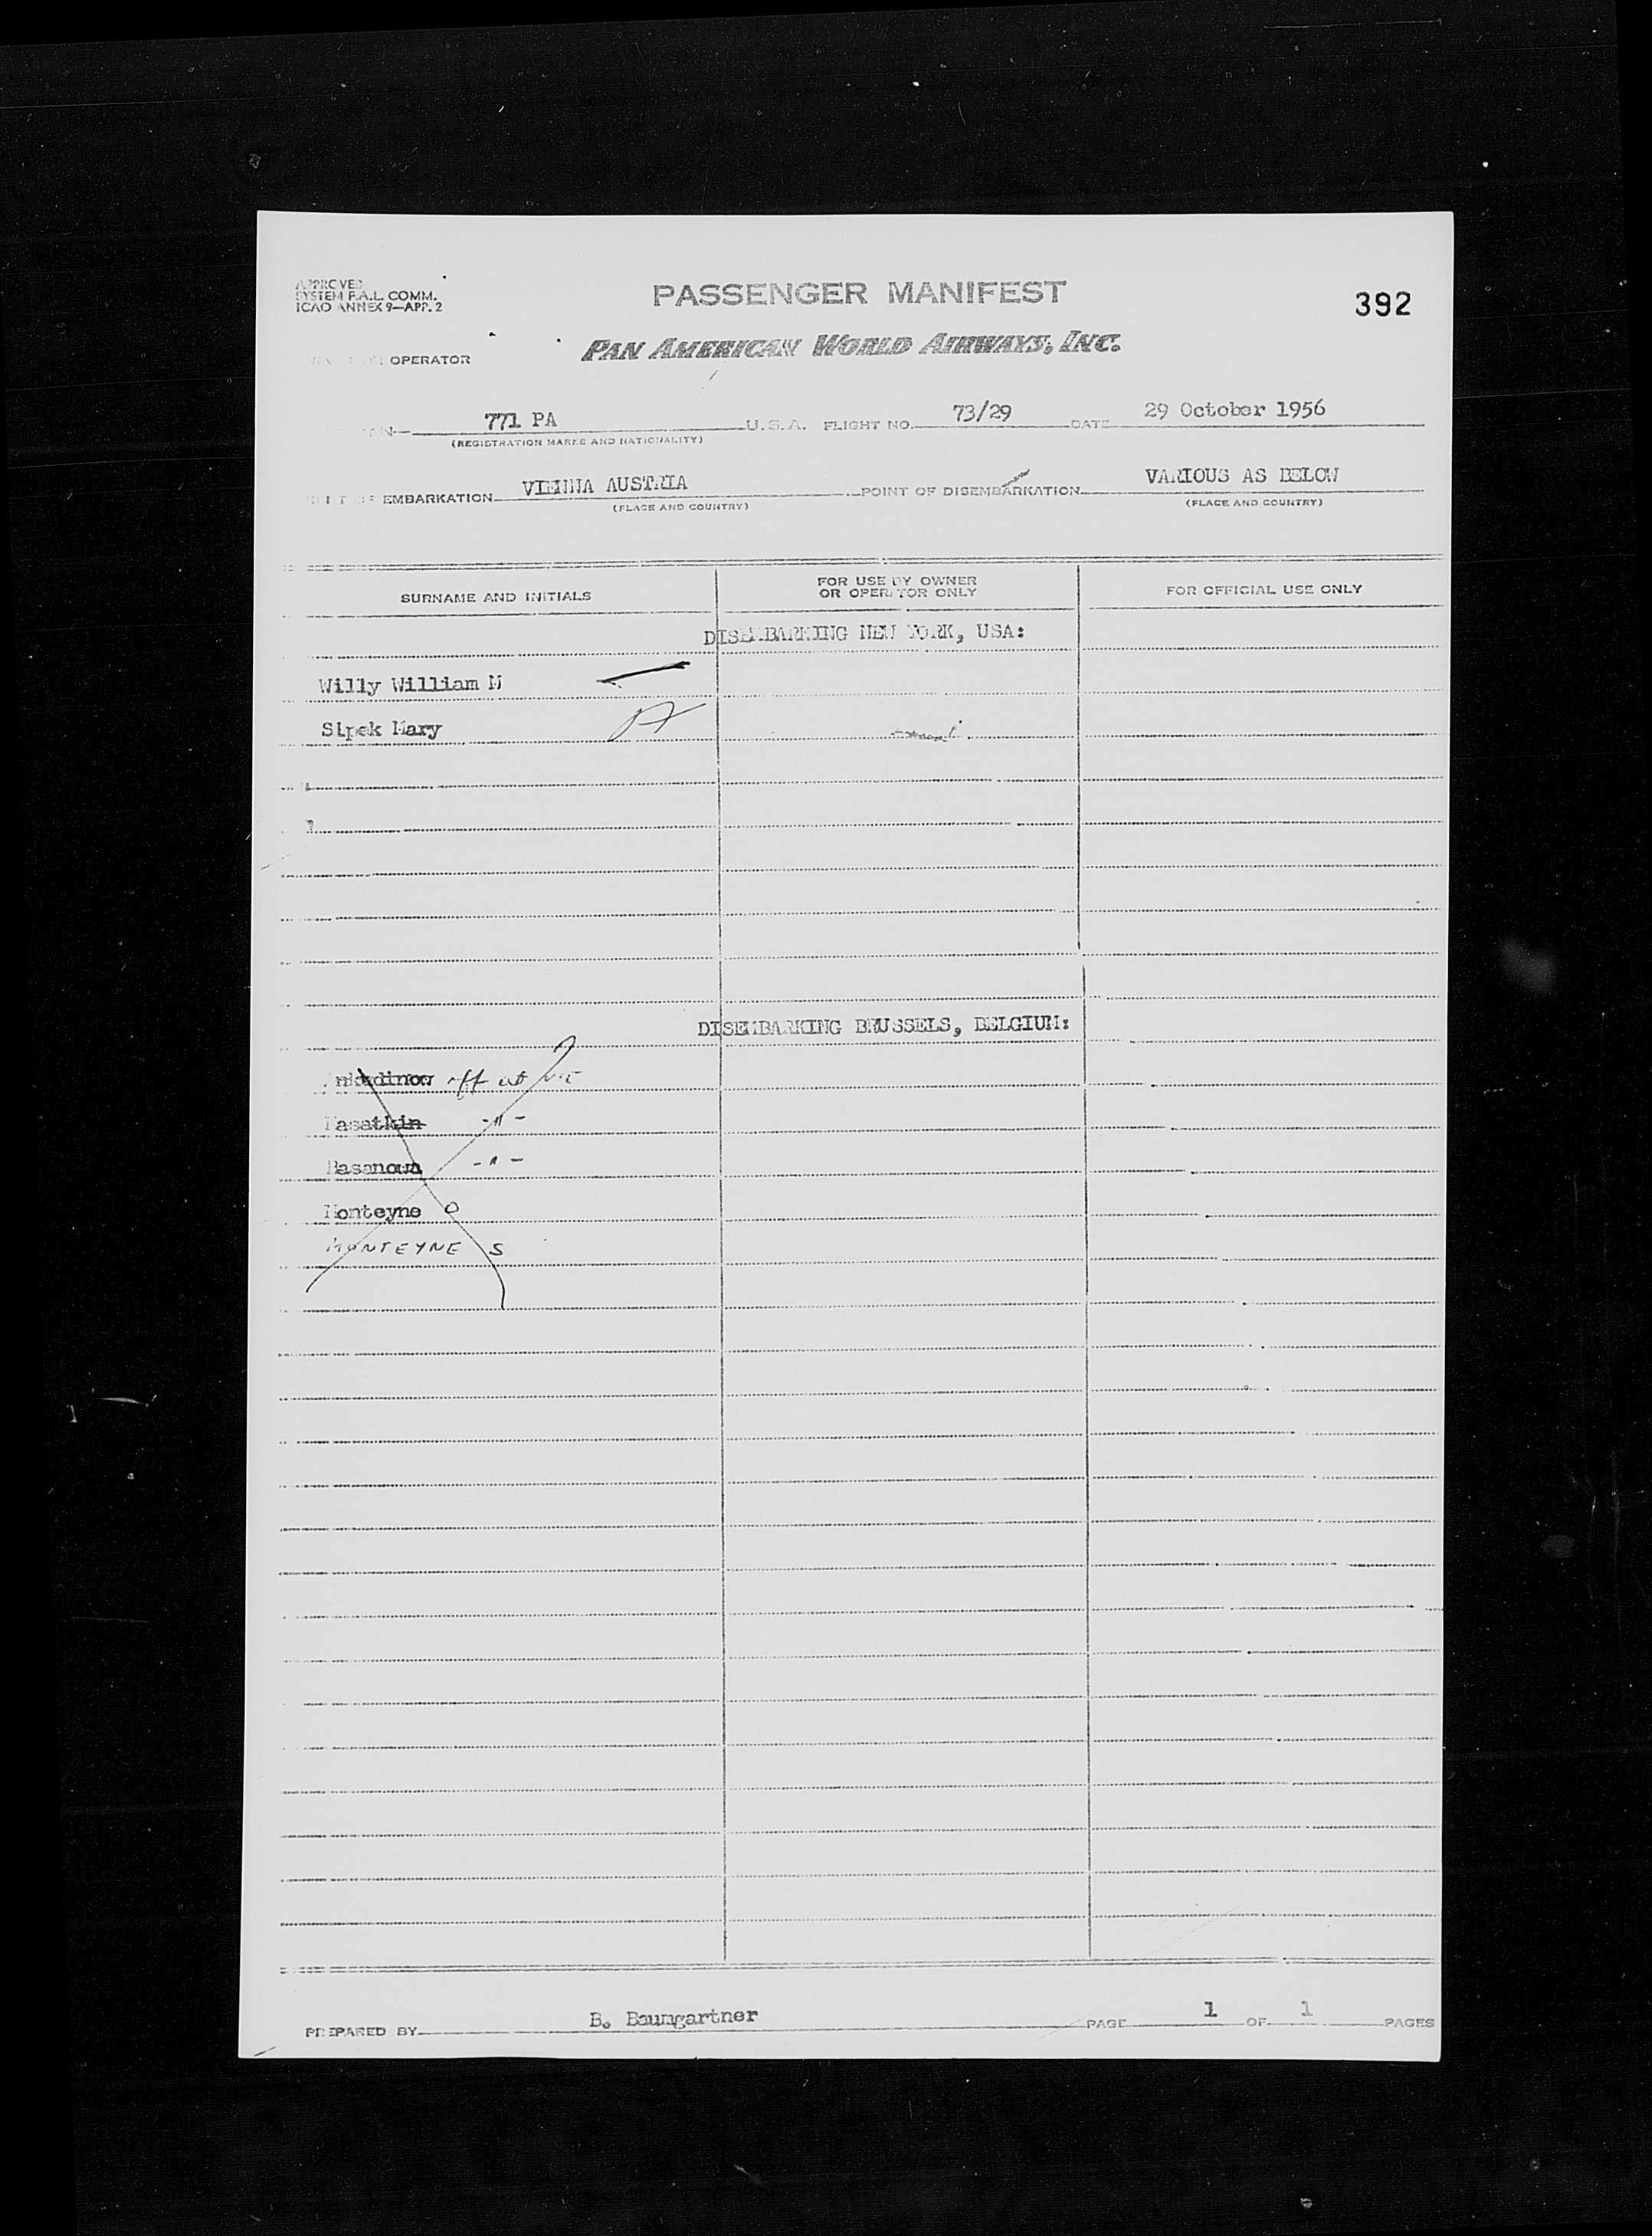 APPROVED
SYSTEM F.A.L. COMM.
ICAO ANNEX 9—APP. 2
PASSENGER MANIFEST
392
OPERATOR
PAN AMERICAN WORLD AIRWAYS, INC.
771 PA U.S.A. FLIGHT NO. 73/29 DATE 29 October 1956
(REGISTRATION MARKS AND NATIONALITY)
EMBARKATION VIENNA AUSTRIA POINT OF DISEMBARKATION VARIOUS AS BELOW
(PLACE AND COUNTRY) (PLACE AND COUNTRY)
SURNAME AND INITIALS
FOR USE BY OWNER
OR OPERATOR ONLY
FOR OFFICIAL USE ONLY
DISEMBARKING NEW YORK, USA:
Willy William M
Sipek Mary
DISEMBARKING BRUSSELS, BELGIUM:
off at
-"-
Basanova -"-
Monteyne O
MONTEYNE S
PREPARED BY B. Baumgartner PAGE 1 OF 1 PAGES